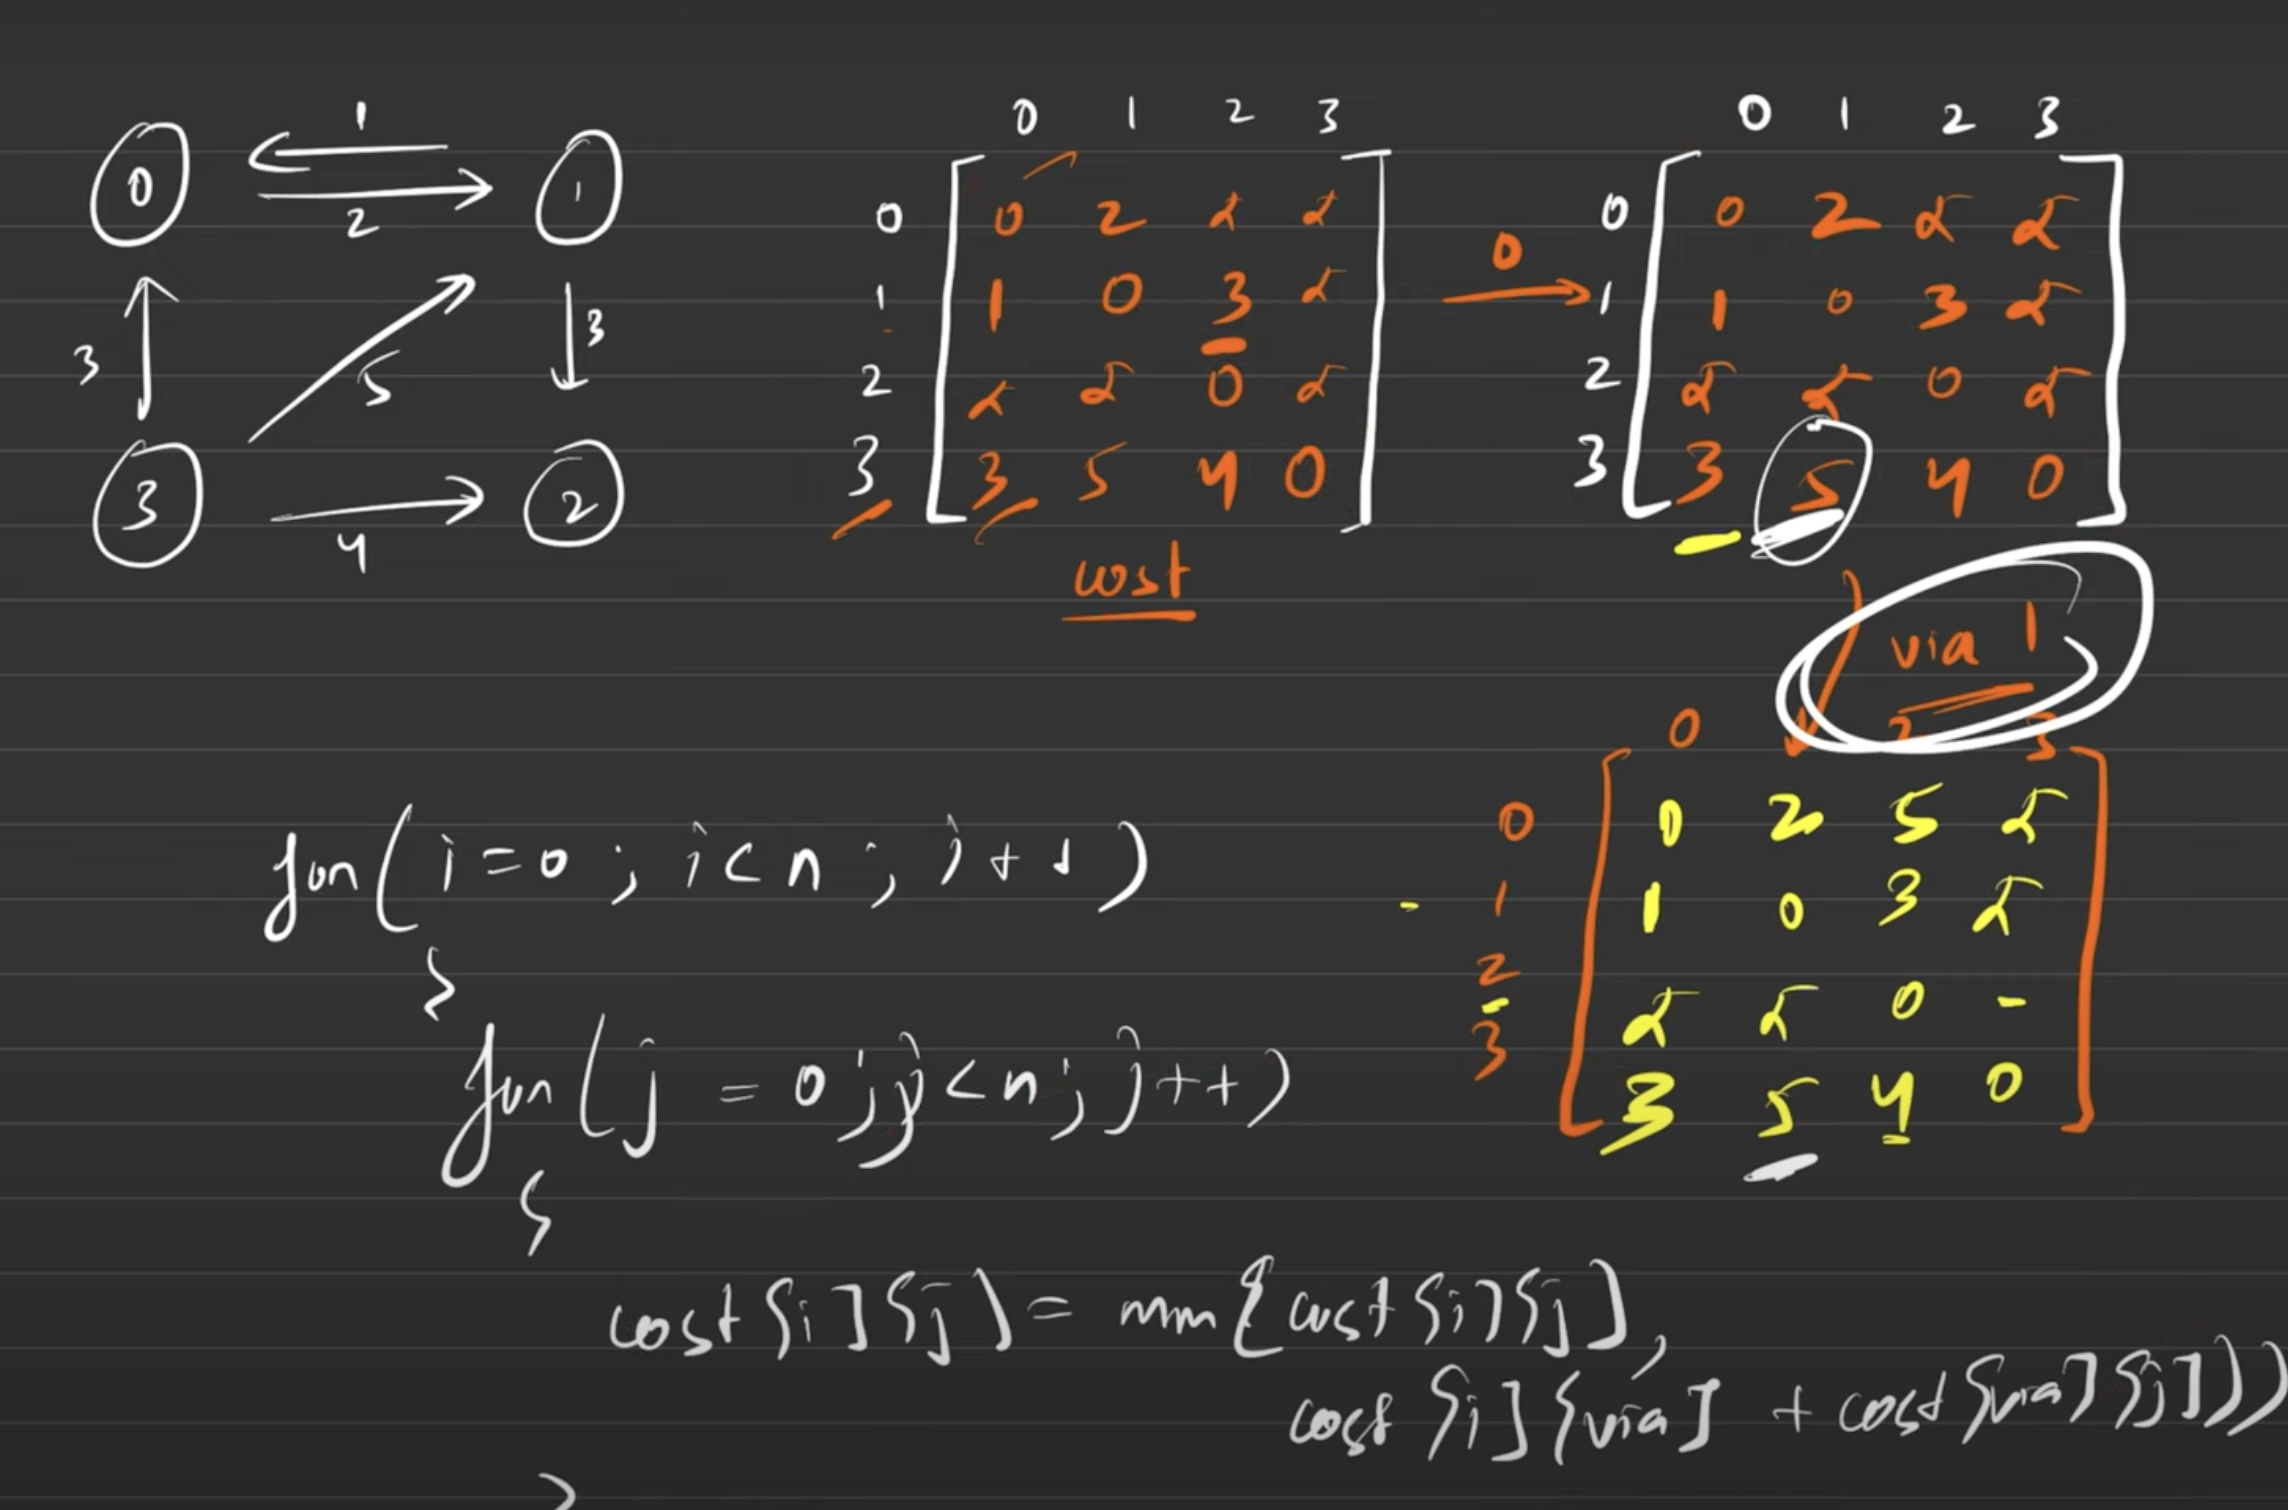 1
0 1
2
3 5 3
3 2
4
0 1 2 3
0 0 2 α α
1 1 0 3 α
2 α α 0 α
3 3 5 4 0
cost
0
0 1 2 3
0 0 2 α α
1 1 0 3 α
2 α α 0 α
3 3 5 4 0
via 1
0 2 3
0 0 2 5 α
1 1 0 3 α
2 α α 0 -
3 3 5 4 0
for( i=0 ; i<n ; i++ )
{
for( j = 0 ; j<n ; j++ )
{
cost[i][j] = min(cost[i][j],
cost[i][via] + cost[via][j]))
}